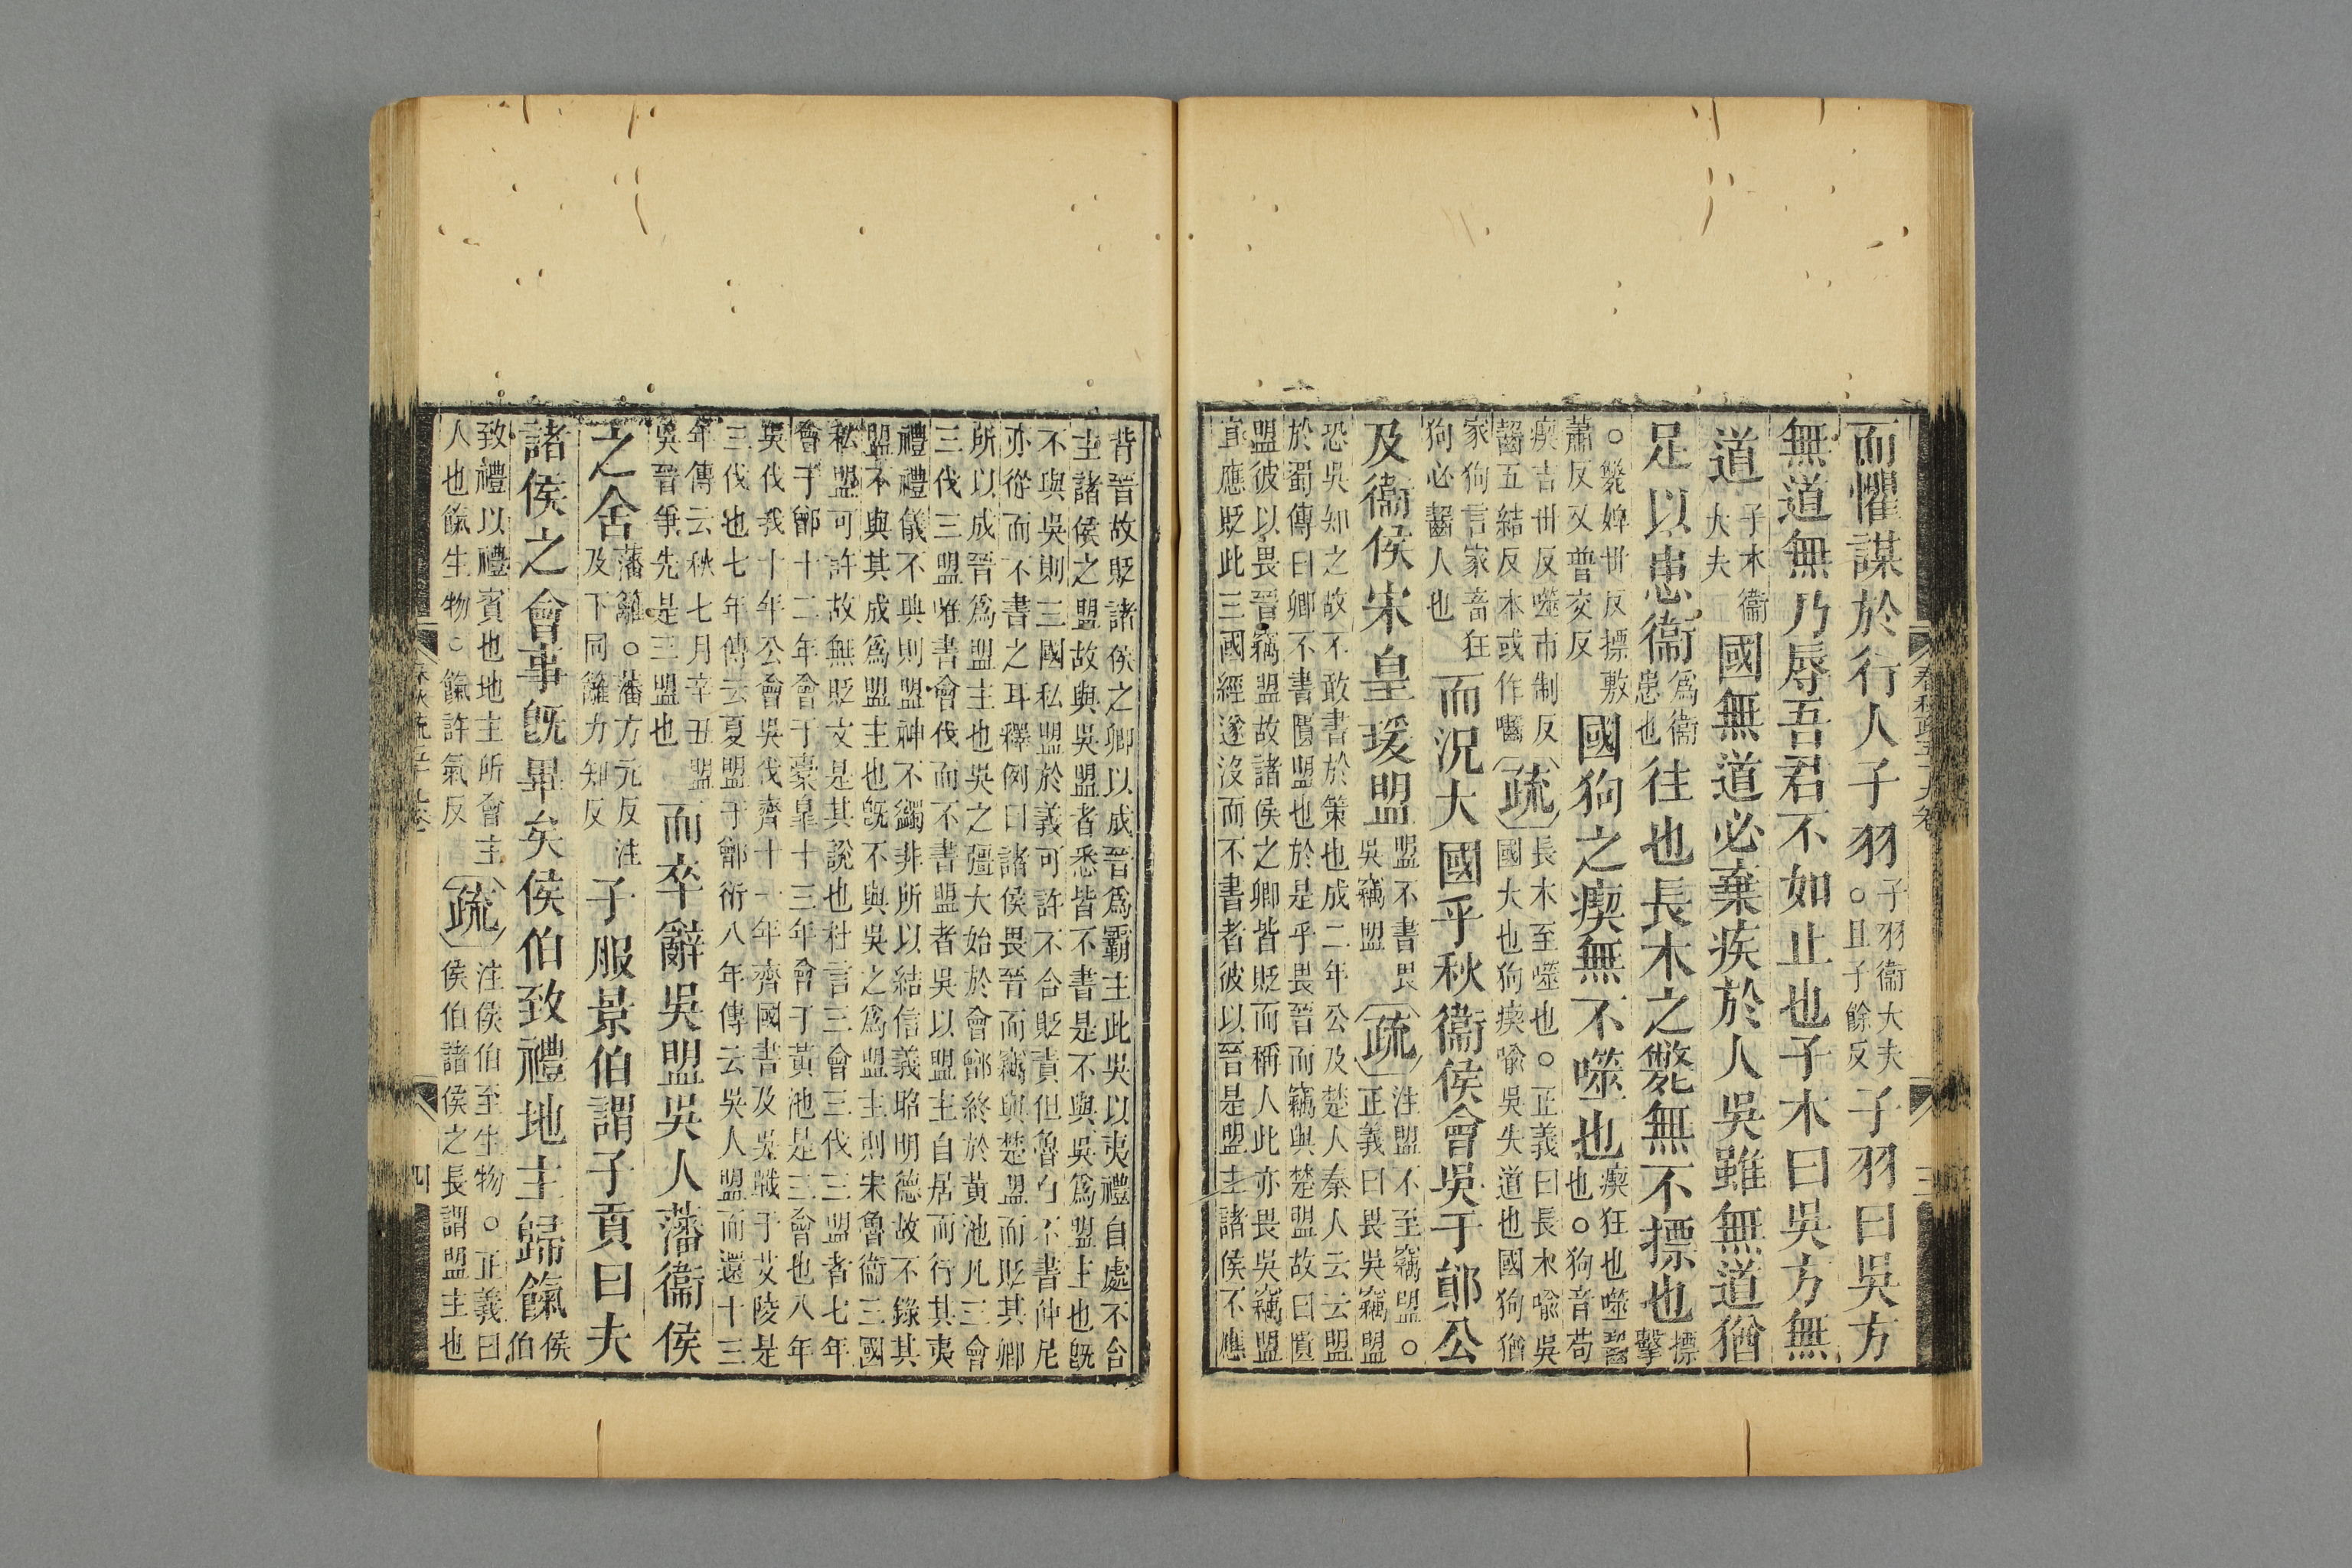 春秋疏五十九卷
三
而懼謀於行人子羽子羽衞大夫○且子餘反子羽曰吳方
無道無乃辱吾君不如止也子木曰吳方無
道子木衞大夫國無道必棄疾於人吳雖無道猶
足以患衞為衞患也往也長木之斃無不摽也摽擊
○斃婢世反摽敷蕭反又普交反國狗之瘈無不噬也瘈狂也噬齧也○狗音苟
瘈吉世反噬市制反齧五結反本或作囓疏長木至噬也○正義曰長木喻吳國大也狗瘈喻吳失道也國狗猶
家狗言家畜狂狗必齧人也而況大國乎秋衞侯會吳于鄖公
及衞侯宋皇瑗盟盟不書畏吳竊盟疏注盟不至竊盟○正義曰畏吳竊盟
恐吳知之故不敢書於策也成二年公及楚人秦人云云盟
於蜀傳曰卿不書匱盟也於是乎畏晉而竊與楚盟故曰匱
盟彼以畏晉竊盟故諸侯之卿皆貶而稱人此亦畏吳竊盟
直應貶此三國經遂沒而不書者彼以晉是盟主諸侯不應
背晉故貶諸侯之卿以成晉爲霸主此吳以夷禮自處不合
主諸侯之盟故與吳盟者悉皆不書是不與吳爲盟主也旣
不與吳則三國私盟於義可許不合貶責但魯自不書仲尼
亦從而不書之耳釋例曰諸侯畏晉而竊與楚盟而貶其卿
所以成晉爲盟主也吳之彊大始於會鄫終於黃池凡三會
三伐三盟唯書會伐而不書盟者吳以盟主自居而行其夷
禮禮儀不典則盟神不蠲非所以結信義昭明德故不錄其
盟不與其成爲盟主也旣不與吳之爲盟主則宋魯衞三國
私盟可許故無貶文是其說也杜言三會三伐三盟者七年
會于鄫十二年會于橐皐十三年會于黃池是三會也八年
吳伐我十年公會吳伐齊十一年齊國書及吳戰于艾陵是
三伐也七年傳云夏盟于鄫衍八年傳云吳人盟而還十三
年傳云秋七月辛丑盟吳晉爭先是三盟也而卒辭吳盟吳人藩衞侯
之舍藩籬○藩方元反注及下同籬力知反子服景伯謂子貢曰夫
諸侯之會事旣畢矣侯伯致禮地主歸餼侯伯
致禮以禮賓也地主所會主人也餼生物○餼許氣反疏注侯伯至生物○正義曰侯伯諸侯之長謂盟主也
四